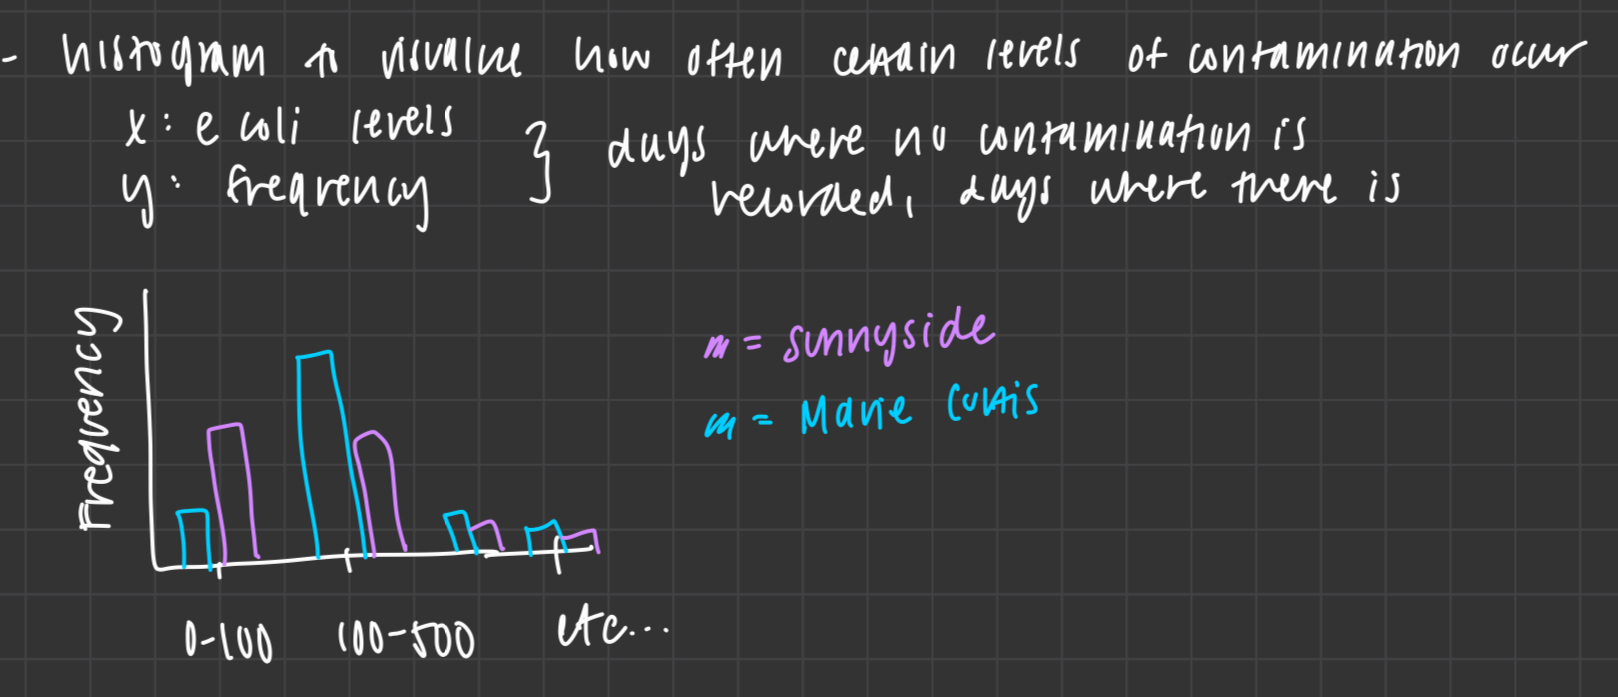 - histogram to visualize how often certain levels of contamination occur
x: e coli levels
y: frequency
} days where no contamination is
recorded, days where there is
Frequency
m = sunnyside
m = Marie Curtis
0-100
100-500
etc...